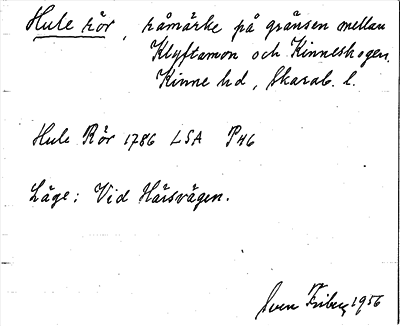 Hule rör, råmärke på gränsen mellan
Klyftamon och Kinneskogen.
Kinne hd, Skarab. l.
Hule Rör 1786 LSA P46
Läge: Vid Hårsvägen.
Sven Friberg 1956